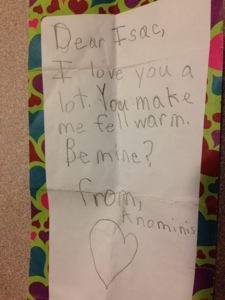 Dear Isac,
I love you a
lot. You make
me fell warm.
Be mine?
from,
Anominis